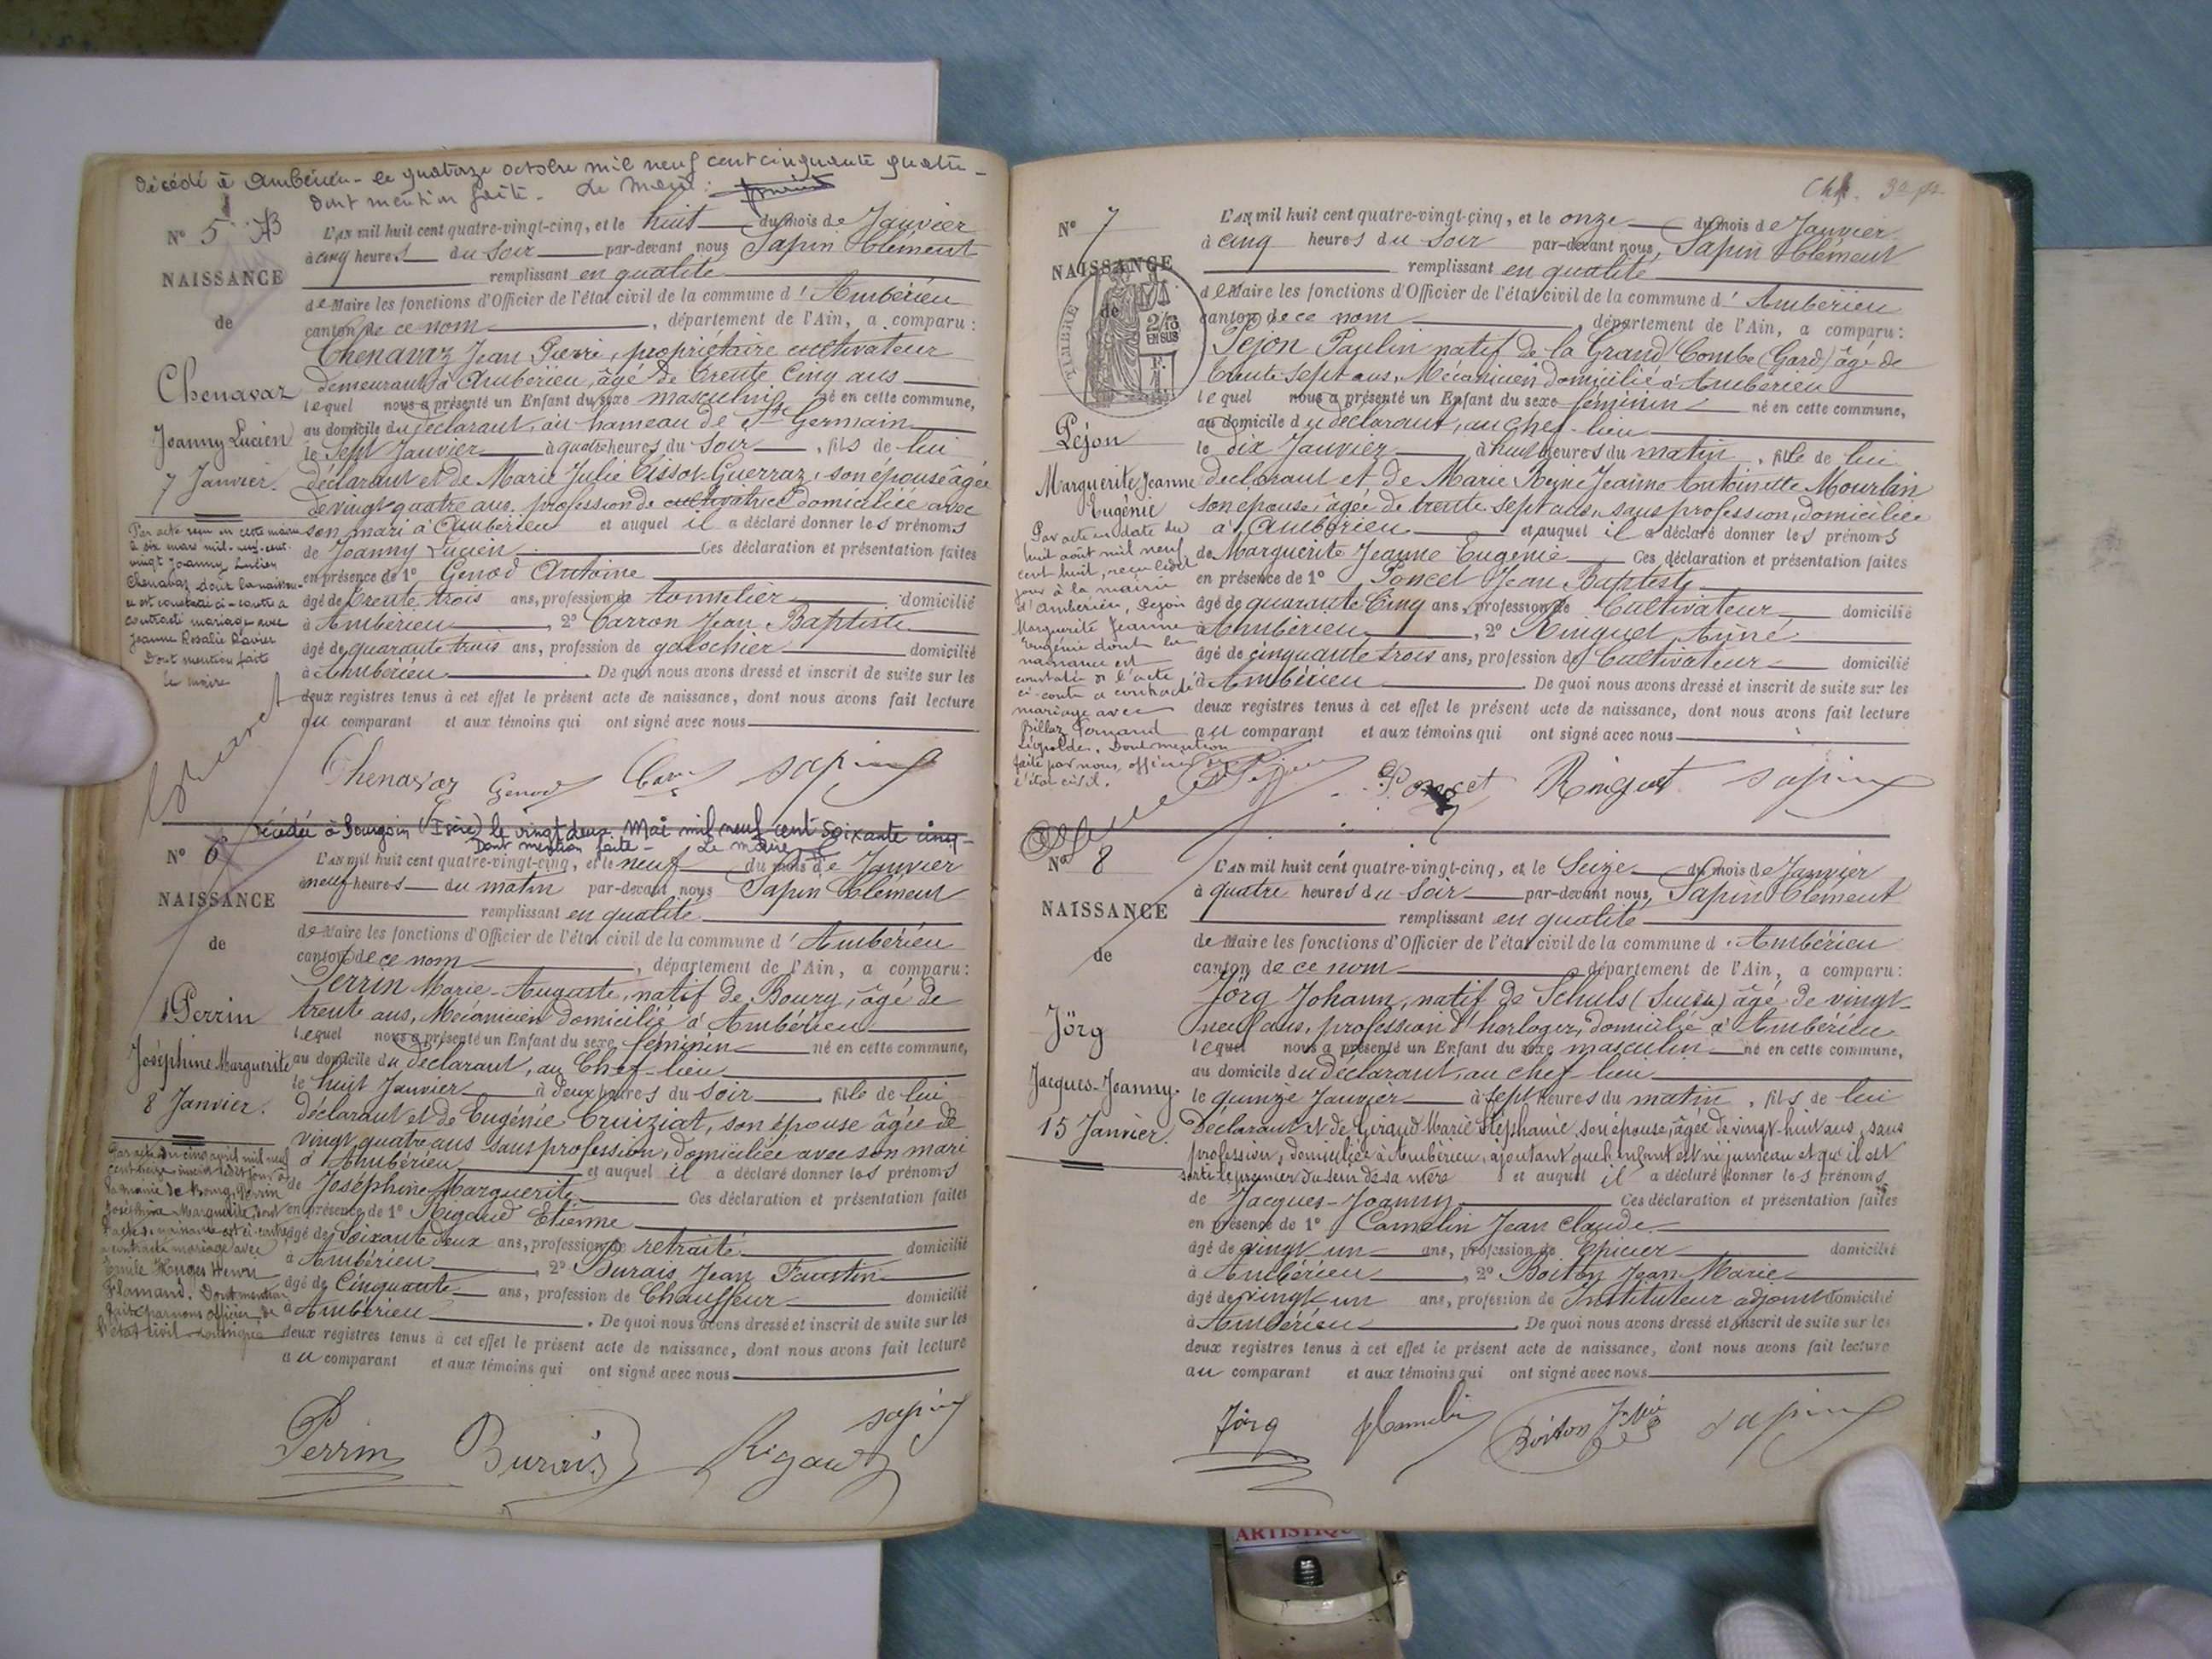 décédé à Ambérieu - le quatorze octobre mil neuf cent cinquante quatre -
dont mention faite - Le Maire :
N° 5
NAISSANCE
de
Chenavaz
Joanny Lucien
7 Janvier.
Par acte reçu en cette mairie
le six mars mil-neuf-cent-
vingt Joanny Lucien
Chenavaz dont la naissan-
ce est constatée ci-contre a
contracté mariage avec
Jeanne Rosalie Ravier
Dont mention faite
le maire
L'AN mil huit cent quatre-vingt-cinq, et le huit du mois de Janvier
à cinq heures du soir par-devant nous Sapin Clément
remplissant en qualité
de Maire les fonctions d'Officier de l'état civil de la commune d'Ambérieu
canton de ce nom, département de l'Ain, a comparu :
Chenavaz Jean Pierre, propriétaire cultivateur
demeurant à Ambérieu, âgé de trente cinq ans
lequel nous a présenté un Enfant du sexe masculin né en cette commune,
au domicile du déclarant, au hameau de St Germain
le Sept Janvier à quatre heures du soir, fils de lui
déclarant et de Marie Julie Cissot-Guerraz, son épouse âgée
de vingt quatre ans, profession de cultivatrice domiciliée avec
son mari à Ambérieu et auquel il a déclaré donner les prénoms
de Joanny Lucien Ces déclaration et présentation faites
en présence de 1° Genod Antoine
âgé de trente trois ans, profession de tonnelier domicilié
à Ambérieu, 2° Carron Jean Baptiste
âgé de quarante trois ans, profession de galochier domicilié
à Ambérieu. De quoi nous avons dressé et inscrit de suite sur les
deux registres tenus à cet effet le présent acte de naissance, dont nous avons fait lecture
au comparant et aux témoins qui ont signé avec nous
Chenavaz Genod Carron Sapin
décédée à Bourgoin (Isère) le vingt deux Mai mil neuf cent soixante cinq -
Dont mention faite - Le maire
N° 6
NAISSANCE
de
Perrin
Joséphine Marguerite
8 Janvier.
Par acte du cinq avril mil neuf
cent treize inscrit ledit jour à
la mairie de Bourg, Perrin
Joséphine Marguerite, dont
l'acte de naissance est ci-contre
a contracté mariage avec
Emile Hugues Henri
Flamand. Dont mention
faite par nous officier de
l'état civil soussigné
L'AN mil huit cent quatre-vingt-cinq, et le neuf du mois de Janvier
à neuf heures du matin par-devant nous Sapin Clément
remplissant en qualité
de Maire les fonctions d'Officier de l'état civil de la commune d'Ambérieu
canton de ce nom, département de l'Ain, a comparu :
Perrin Marie-Auguste, natif de Bourg, âgé de
trente ans, Mécanicien domicilié à Ambérieu
lequel nous a présenté un Enfant du sexe féminin né en cette commune,
au domicile du déclarant, au Chef-lieu
le huit Janvier à deux heures du soir, fille de lui
déclarant et de Eugénie Cruiziat, son épouse âgée de
vingt quatre ans sans profession, domiciliée avec son mari
à Ambérieu et auquel il a déclaré donner les prénoms
de Joséphine Marguerite Ces déclaration et présentation faites
en présence de 1° Rigaud Etienne
âgé de Soixante deux ans, profession de retraité domicilié
à Ambérieu, 2° Burais Jean Faustin
âgé de Cinquante ans, profession de Chauffeur domicilié
à Ambérieu. De quoi nous avons dressé et inscrit de suite sur les
deux registres tenus à cet effet le présent acte de naissance, dont nous avons fait lecture
au comparant et aux témoins qui ont signé avec nous
Sapin
Perrin Burais Rigaud
N° 7
NAISSANCE
de
TIMBRE
2/13
EN SUS
Pejon
Marguerite Jeanne
Eugénie
Par acte en date du
huit août mil neuf
cent huit, reçu ledit
jour à la mairie
d'Ambérieu, Pejon
Marguerite Jeanne
Eugénie dont la
naissance est
constatée en l'acte
ci-contre a contracté
mariage avec
Billaz Fernand
Léopolde. Dont mention
faite par nous, officier de
l'état civil.
L'AN mil huit cent quatre-vingt-cinq, et le onze du mois de Janvier
à cinq heures du soir par-devant nous, Sapin Clément
remplissant en qualité
de Maire les fonctions d'Officier de l'état civil de la commune d'Ambérieu
canton de ce nom département de l'Ain, a comparu :
Pejon Paulin natif de la Grand'Combe (Gard) âgé de
trente-sept ans, Mécanicien domicilié à Ambérieu
lequel nous a présenté un Enfant du sexe féminin né en cette commune,
au domicile du déclarant, au chef-lieu
le dix Janvier à huit heures du matin, fille de lui
déclarant et de Marie Reine Jeanne Antoinette Mourlan
son épouse âgée de trente sept ans, sans profession, domiciliée
à Ambérieu et auquel il a déclaré donner les prénoms
de Marguerite Jeanne Eugénie Ces déclaration et présentation faites
en présence de 1° Poncet Jean Baptiste
âgé de quarante Cinq ans, profession de Cultivateur domicilié
à Ambérieu, 2° Ringuet Aimé
âgé de cinquante trois ans, profession de Cultivateur domicilié
à Ambérieu De quoi nous avons dressé et inscrit de suite sur les
deux registres tenus à cet effet le présent acte de naissance, dont nous avons fait lecture
au comparant et aux témoins qui ont signé avec nous
Pejon Poncet Ringuet Sapin
N° 8
NAISSANCE
de
Jörg
Jacques-Joanny.
15 Janvier.
L'AN mil huit cent quatre-vingt-cinq, et le Seize du mois de Janvier
à quatre heures du soir par-devant nous, Sapin Clément
remplissant en qualité
de Maire les fonctions d'Officier de l'état civil de la commune d'Ambérieu
canton de ce nom département de l'Ain, a comparu :
Jörg Johann, natif de Schuls (Suisse) âgé de vingt-
neuf ans, profession d'horloger, domicilié à Ambérieu
lequel nous a présenté un Enfant du sexe masculin né en cette commune,
au domicile du déclarant, au chef-lieu
le quinze Janvier à sept heures du matin, fils de lui
Déclarant et de Giraud Marie Stéphanie, son épouse, âgée de vingt-huit ans, sans
profession, domiciliée à Ambérieu, ajoutant que l'enfant est né jumeau et qu'il est
sorti le premier du sein de sa mère et auquel il a déclaré donner les prénoms
de Jacques-Joanny Ces déclaration et présentation faites
en présence de 1° Camelin Jean Claude
âgé de vingt un ans, profession de Epicier domicilié
à Ambérieu, 2° Boiton Jean Marie
âgé de vingt un ans, profession de Instituteur adjoint domicilié
à Ambérieu De quoi nous avons dressé et inscrit de suite sur les
deux registres tenus à cet effet le présent acte de naissance, dont nous avons fait lecture
au comparant et aux témoins qui ont signé avec nous
Jörg Camelin Boiton Sapin
ARTISTIQU